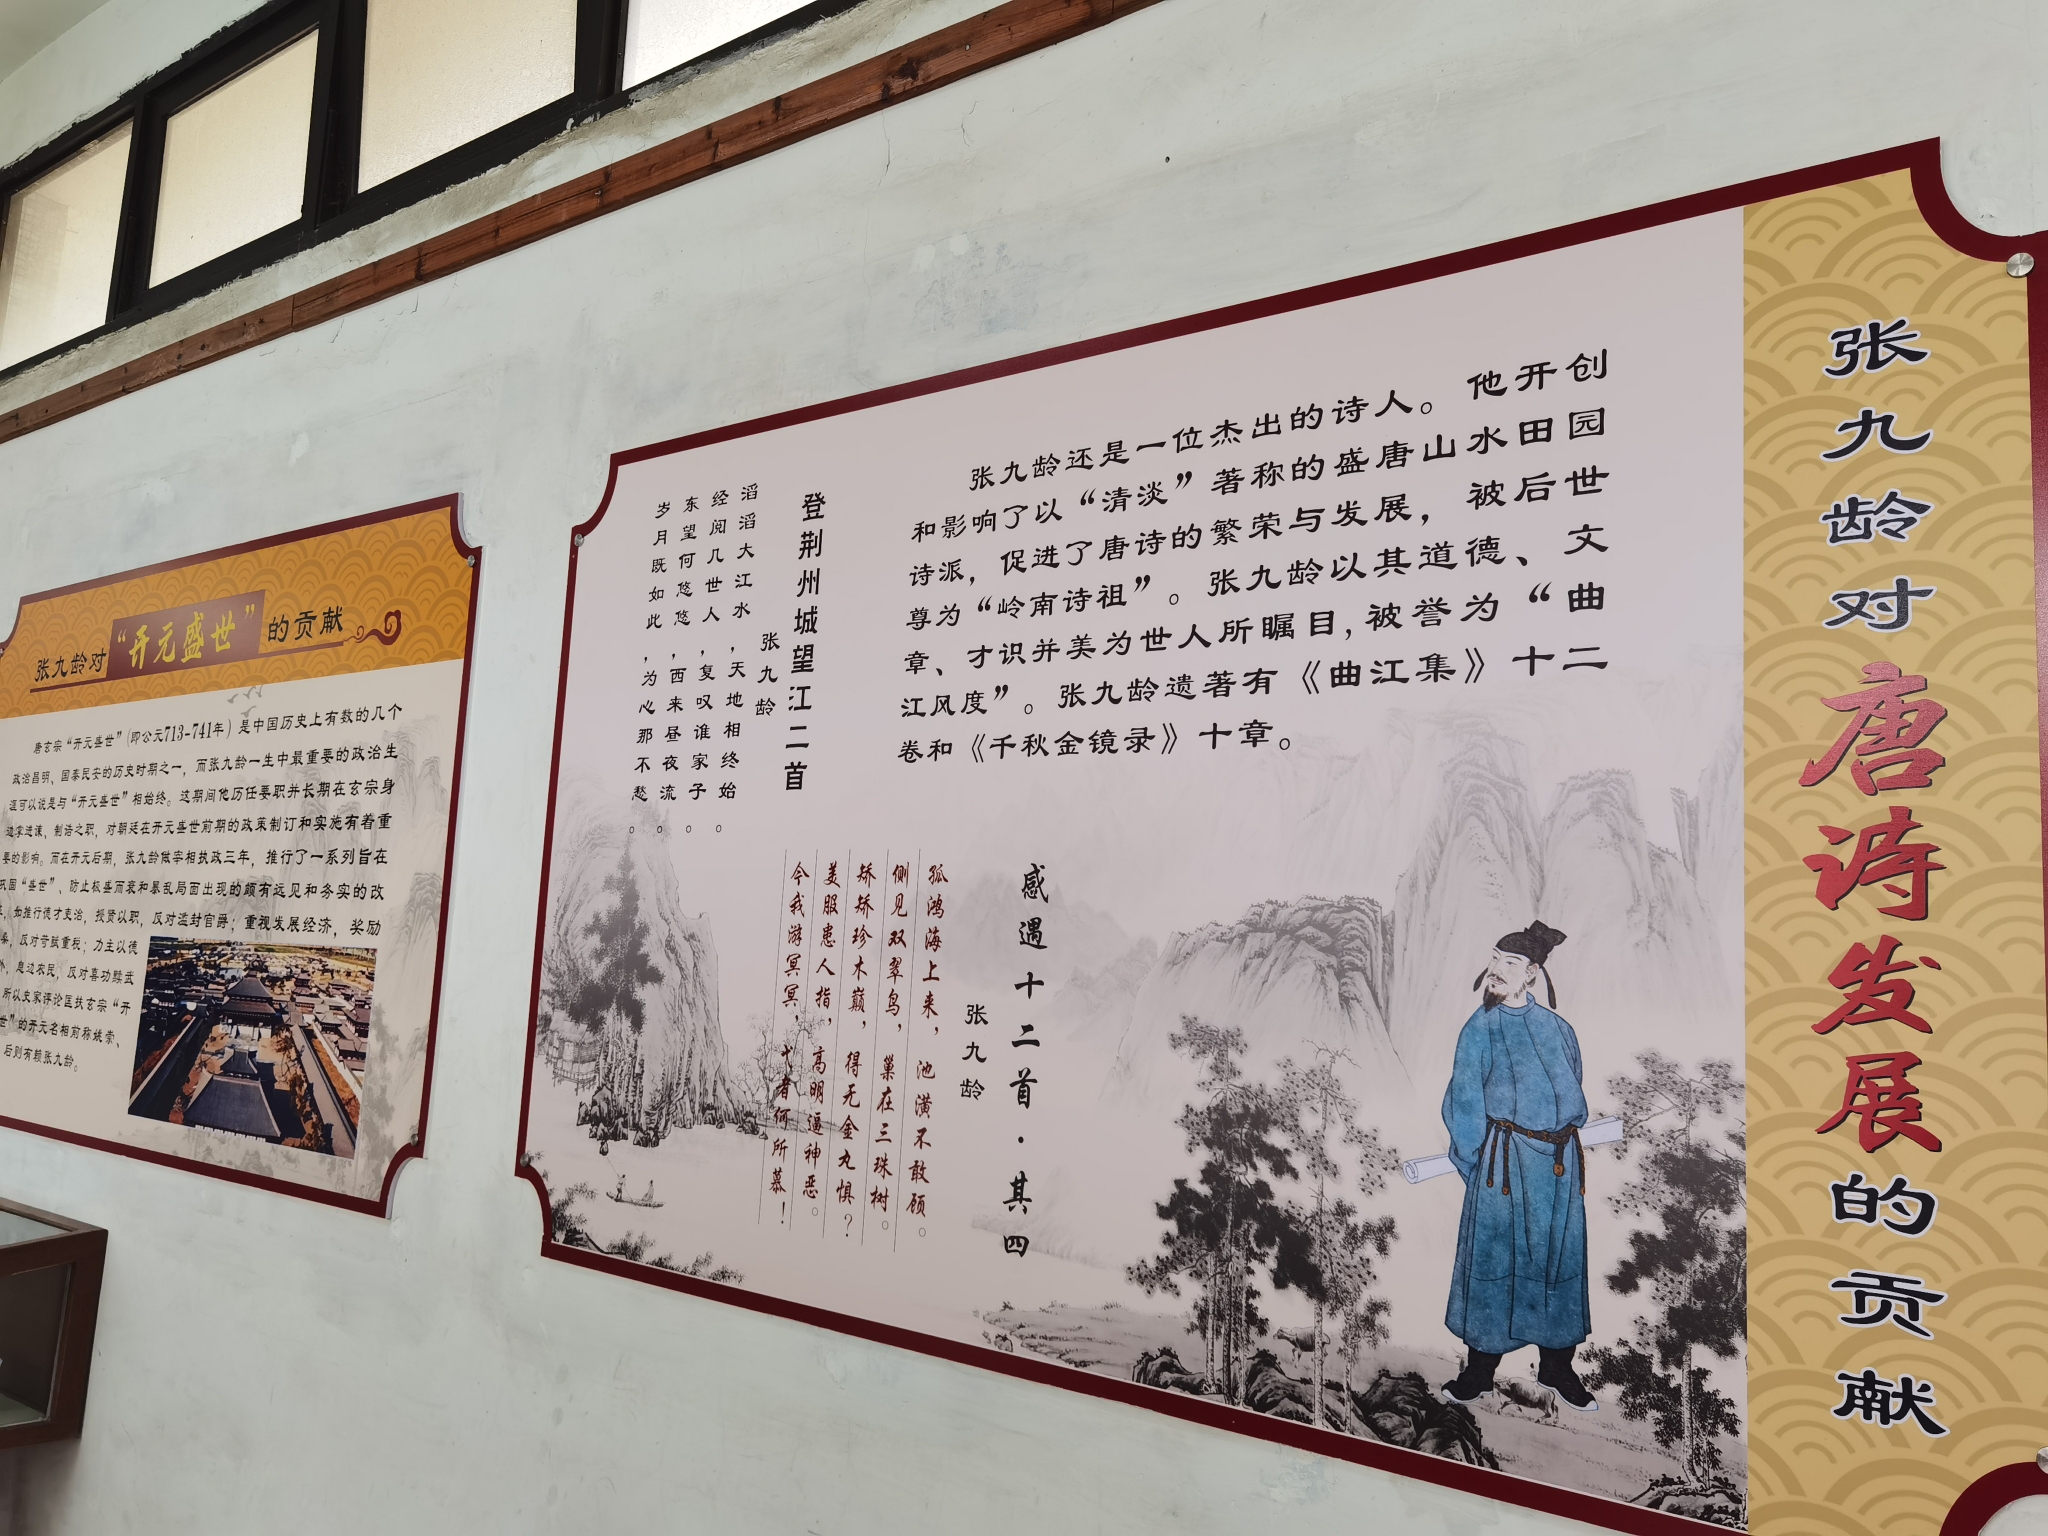 张九龄对“开元盛世”的贡献
唐玄宗“开元盛世”(即公元713-741年)是中国历史上有数的几个
政治昌明、国泰民安的历史时期之一，而张九龄一生中最重要的政治生
涯可以说是与“开元盛世”相始终。这期间他历任要职并长期在玄宗身
边掌进谋、制诰之职，对朝廷在开元盛世前期的政策制订和实施有着重
要的影响。而在开元后期，张九龄做宰相执政三年，推行了一系列旨在
巩固“盛世”、防止极盛而衰和暴乱局面出现的颇有远见和务实的改
如推行德才吏治，授贤以职，反对滥封官爵；重视发展经济，奖励
桑，反对苛赋重税；力主以德
外，息边农民，反对喜功黩武
所以史家评论匡扶玄宗“开
世”的开元名相前称姚崇、
后则有颖张九龄。
张九龄对唐诗发展的贡献
张九龄还是一位杰出的诗人。他开创
和影响了以“清淡”著称的盛唐山水田园
诗派，促进了唐诗的繁荣与发展，被后世
尊为“岭南诗祖”。张九龄以其道德、文
章、才识并美为世人所瞩目,被誉为“曲
江风度”。张九龄遗著有《曲江集》十二
卷和《千秋金镜录》十章。
登荆州城望江二首
张九龄
滔滔大江水，天地相终始。
经阅几世人，复叹谁家子。
东望何悠悠，西来昼夜流。
岁月既如此，为心那不愁。
感遇十二首·其四
张九龄
孤鸿海上来，池潢不敢顾。
侧见双翠鸟，巢在三珠树。
矫矫珍木巅，得无金丸惧？
美服患人指，高明逼神恶。
今我游冥冥，弋者何所慕！